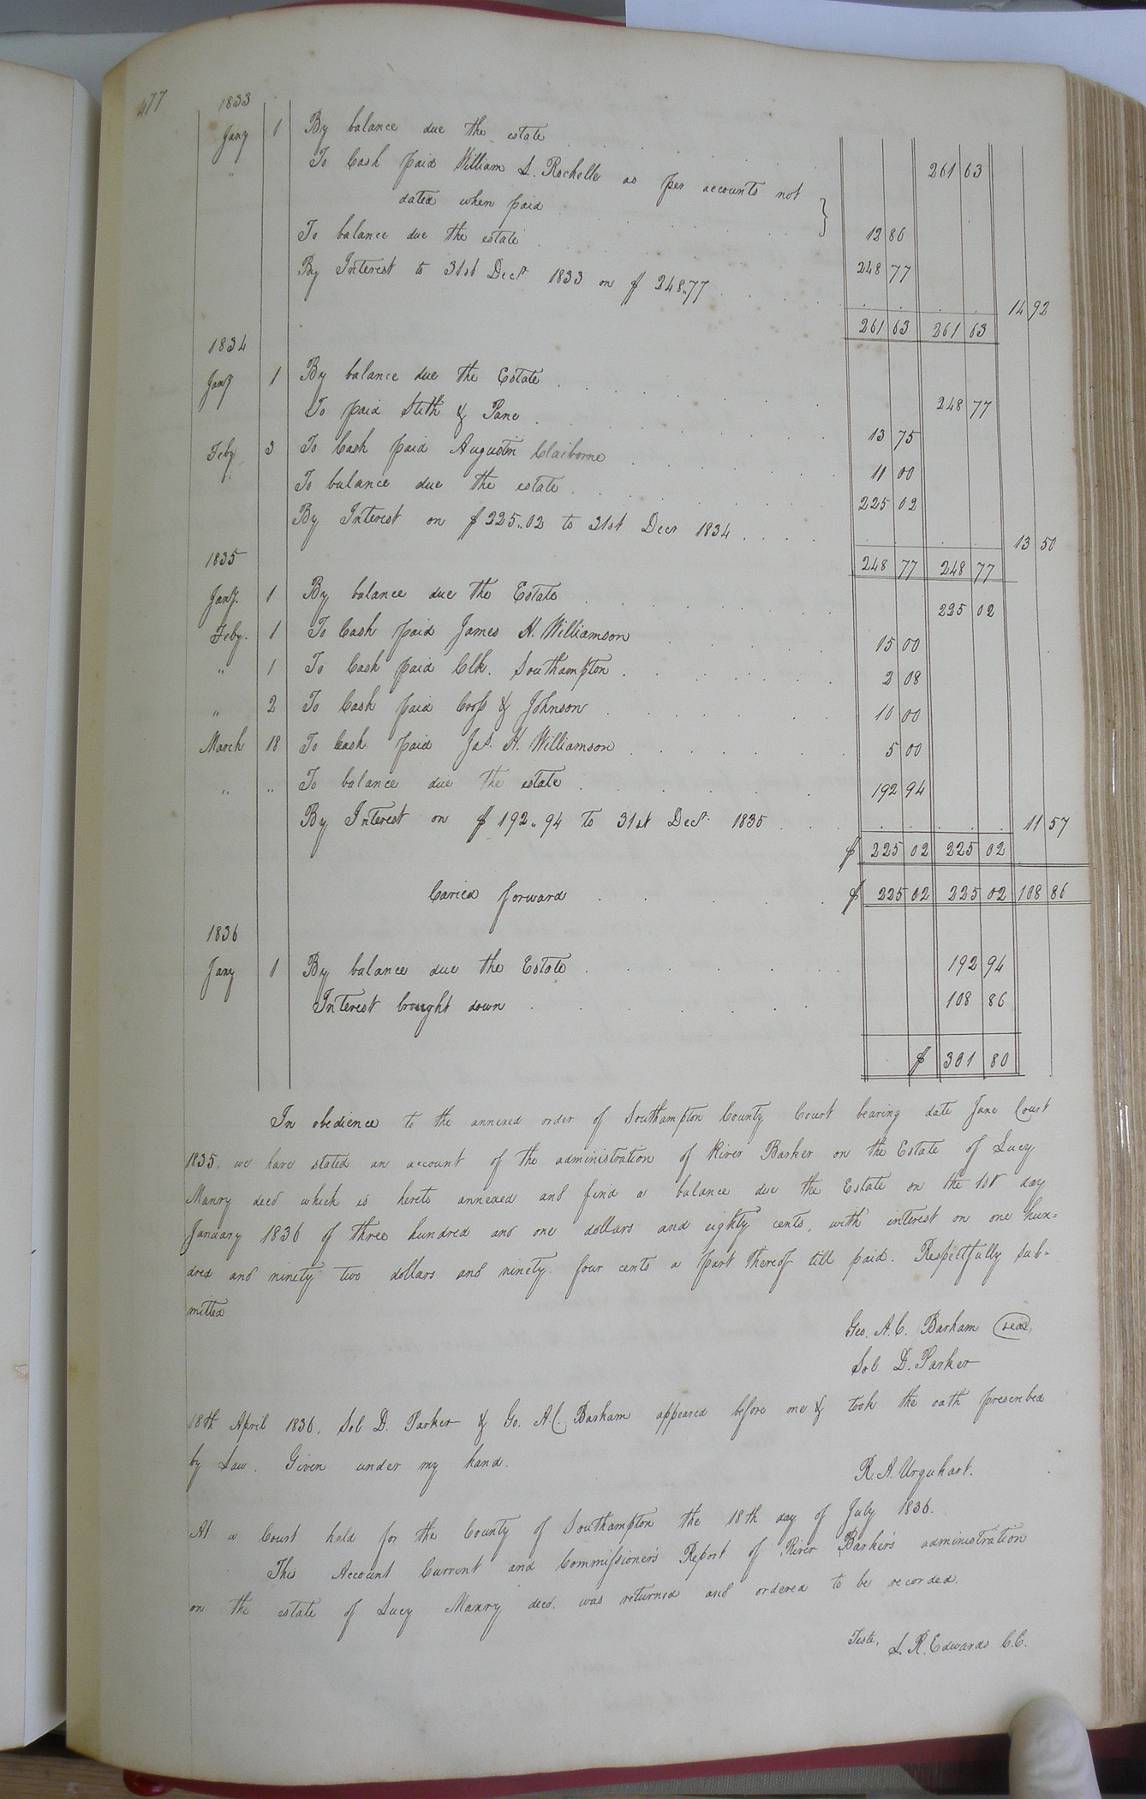 477
1833
Jany 1 By balance due the estate 261 63
" To Cash paid William S. Rochelle as per accounts not
dated when paid } 12 86
To balance due the estate 248 77
By Interest to 31st Decr 1833 on $ 248.77 14 92
261 63 261 63
1834
Jany 1 By balance due the Estate 248 77
To paid Stith & Pane 13 75
Feby 3 To Cash paid Augustin Claiborne 11 00
To balance due the estate 225 02
By Interest on $ 225..02 to 31st Decr 1834 13 50
248 77 248 77
1835
Jany. 1 By balance due the Estate 225 02
Feby. 1 To Cash paid James H. Williamson 15 00
" 1 To Cash paid Clk. Southampton 2 08
" 2 To Cash paid Cross & Johnson 10 00
March 18 To Cash paid Jas. H. Williamson 5 00
" " To balance due the estate 192 94
By Interest on $ 192..94 to 31st Decr. 1835 11 57
$ 225 02 225 02
Caried forward $ 225 02 225 02 108 86
1836
Jany 1 By balance due the Estate 192 94
Interest brought down 108 86
$ 301 80
In obedience to the annexed order of Southampton County Court bearing date June Court
1835. we have stated an account of the administration of River Barker on the Estate of Lucy
Manry decd which is hereto annexed and find a balance due the Estate on the 1st day
January 1836 of three hundred and one dollars and eighty cents, with interest on one hun=
dred and ninety two dollars and ninety four cents a part thereof till paid. Respectfully sub-
mitted
Geo. A. C. Barham (seal)
Sol D. Parker
18th April 1836. Sol D. Parker & Go. A C. Barham appeared before me & took the oath prescribed
by Law. Given under my hand.
R. A. Urquhart.
At a Court held for the County of Southampton the 18th day of July 1836.
This Account Current and Commissioners Report of River Barker's administration
on the estate of Lucy Manry decd. was returned and ordered to be recorded.
Teste, L. R. Edwards C.C.